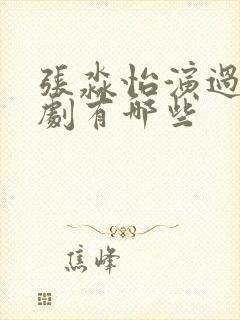 張淼怡演過
劇有哪些
焦峰